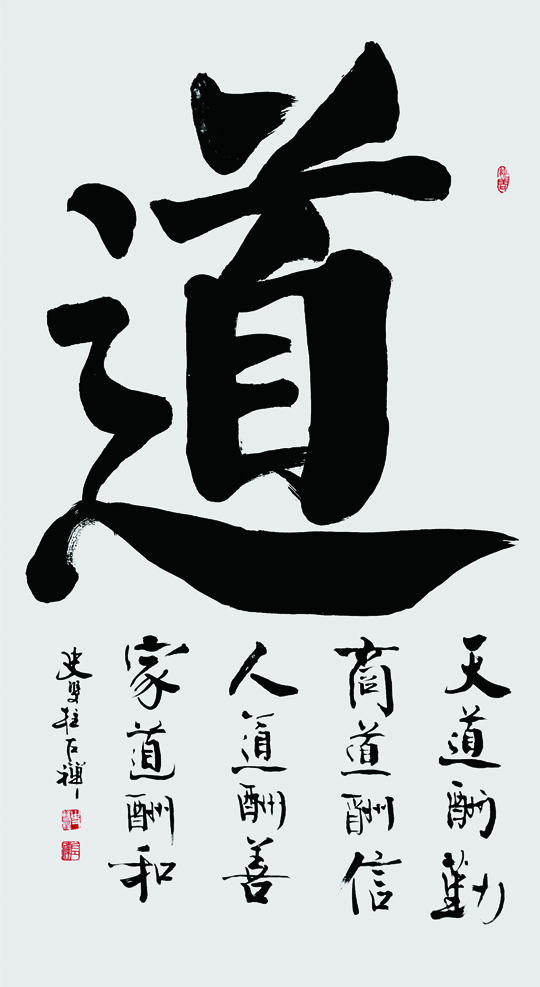 道
天道酬勤
商道酬信
人道酬善
家道酬和
史雙柱百禪